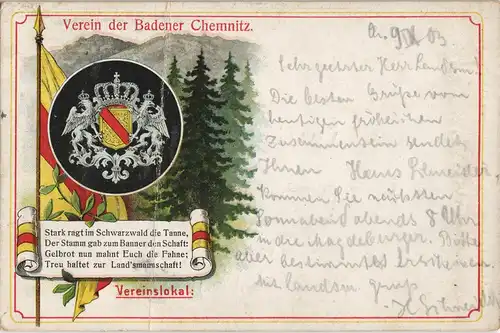 Verein der Badener Chemnitz.
Stark ragt im Schwarzwald die Tanne,
Der Stamm gab zum Banner den Schaft:
Gelbrot nun mahnt Euch die Fahne;
Treu haltet zur Land'smannschaft!
Vereinslokal:
03
Sehr geehrter Herr Landsm.!
Die besten Grüße vom
heutigen fröhlichen
Zusammensein sendet
Ihnen Hans Schneider
kommen Sie nächsten
Sonnabend abends 8 Uhr
in die Magdeburger.
aber bestimmt
mit landsm. gruß
H Schneider